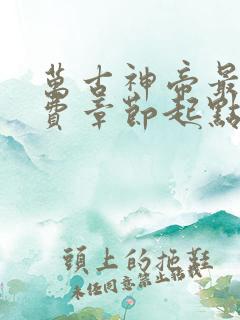 萬古神帝最
費章節起點
頭上的拖鞋
未經同意禁止轉載